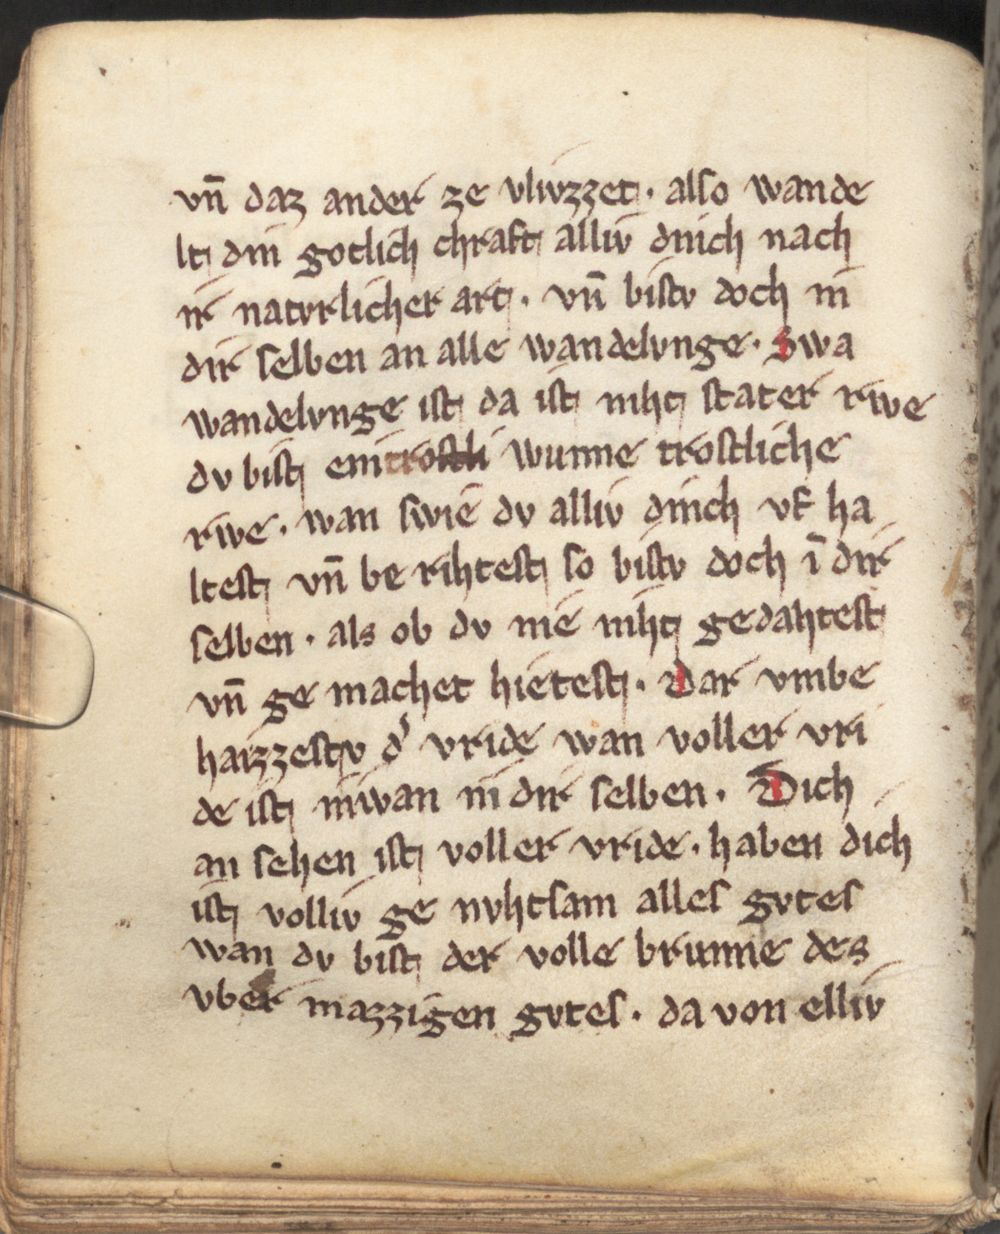 vn̄ daz ander ze vlivzzet · also wande
lt din gotlich chraft alliv dinch nach
ir natvrlicher art · vn̄ bistv doch in
dir selben an alle wandelvnge · Swa
wandelvnge ist da ist niht stater rẃe
dv bist ein trostli wunne trostliche
rẃe · wan swie dv alliv dinch vf ha
ltest vn̄ be rihtest so bistv doch ī dir
selben · als ob dv nie niht gedahtest
vn̄ ge machet hietest · Dar vmbe
haizzestv d' vride wan voller vri
de ist niwan in dir selben · Dich
an sehen ist voller vride · haben dich
ist volliv ge nvhtsam alles gvtes
wan dv bist der volle brunne des
vber mazzigen gvtes · da von elliv